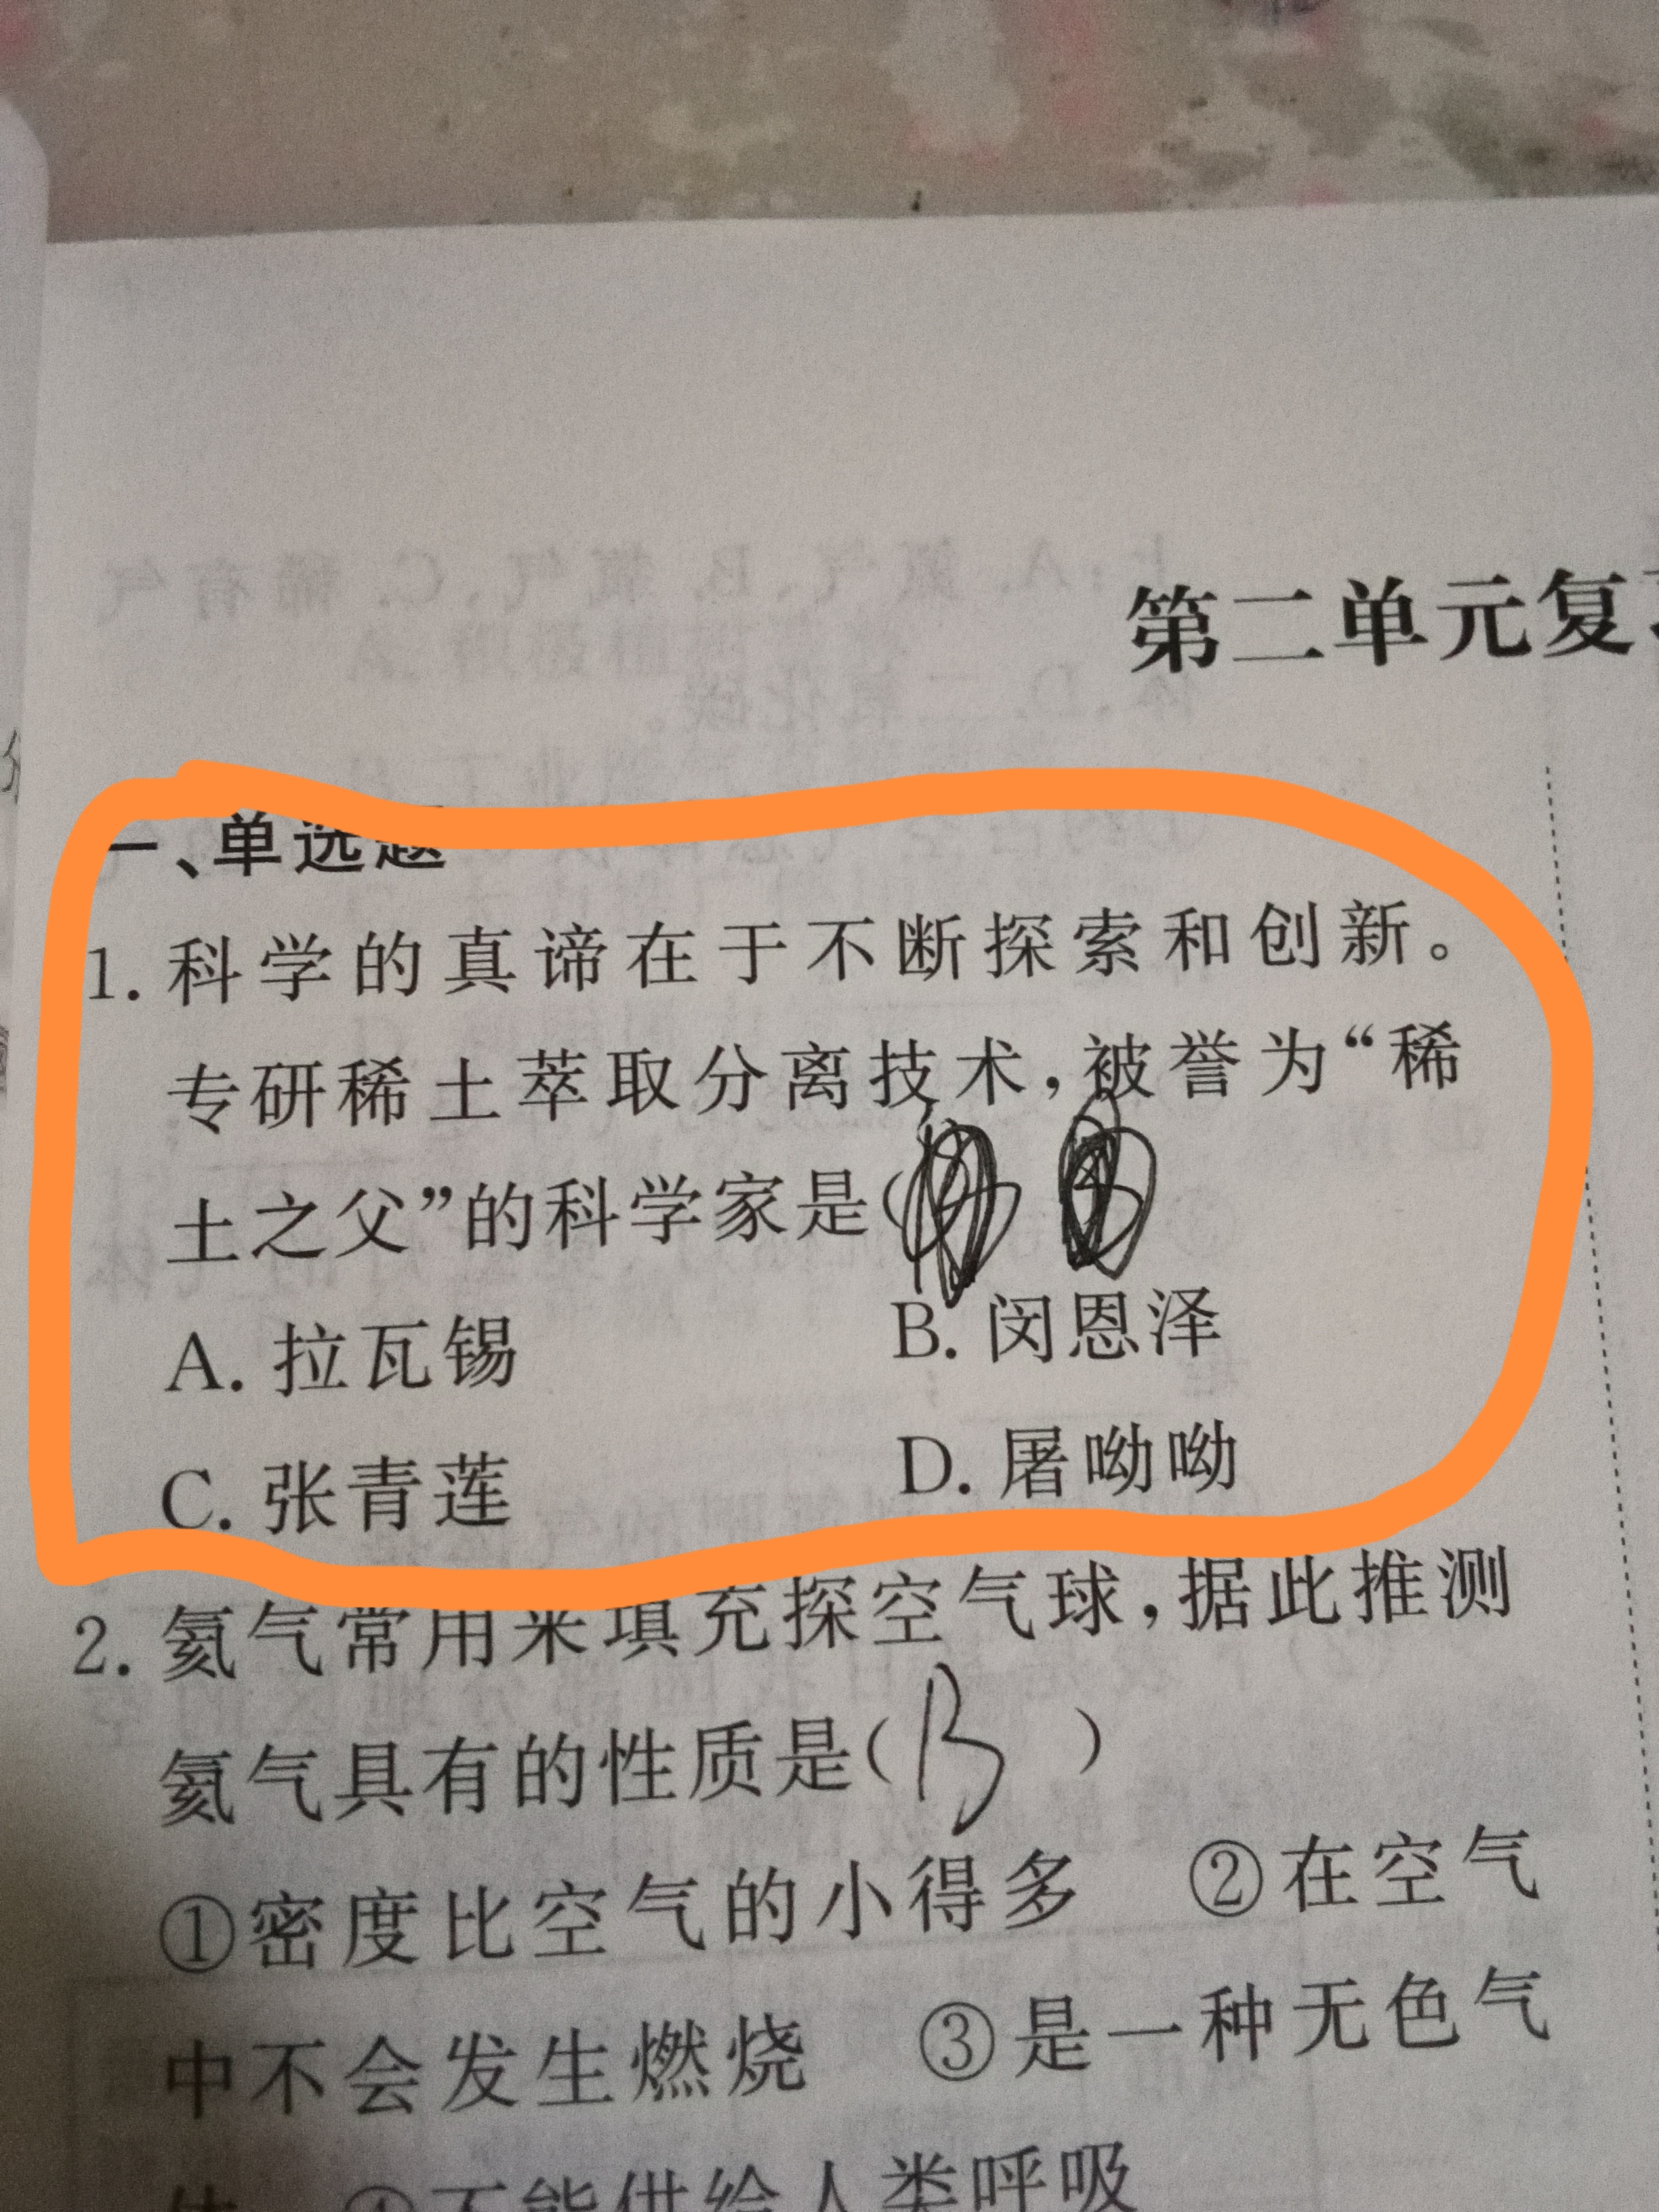 第二单元复
一、单选题
1. 科学的真谛在于不断探索和创新。
专研稀土萃取分离技术,被誉为“稀
土之父”的科学家是(
A. 拉瓦锡 B. 闵恩泽
C. 张青莲 D. 屠呦呦
2. 氦气常用来填充探空气球,据此推测
氦气具有的性质是( B )
①密度比空气的小得多 ②在空气
中不会发生燃烧 ③是一种无色气
体 ④不能供给人类呼吸